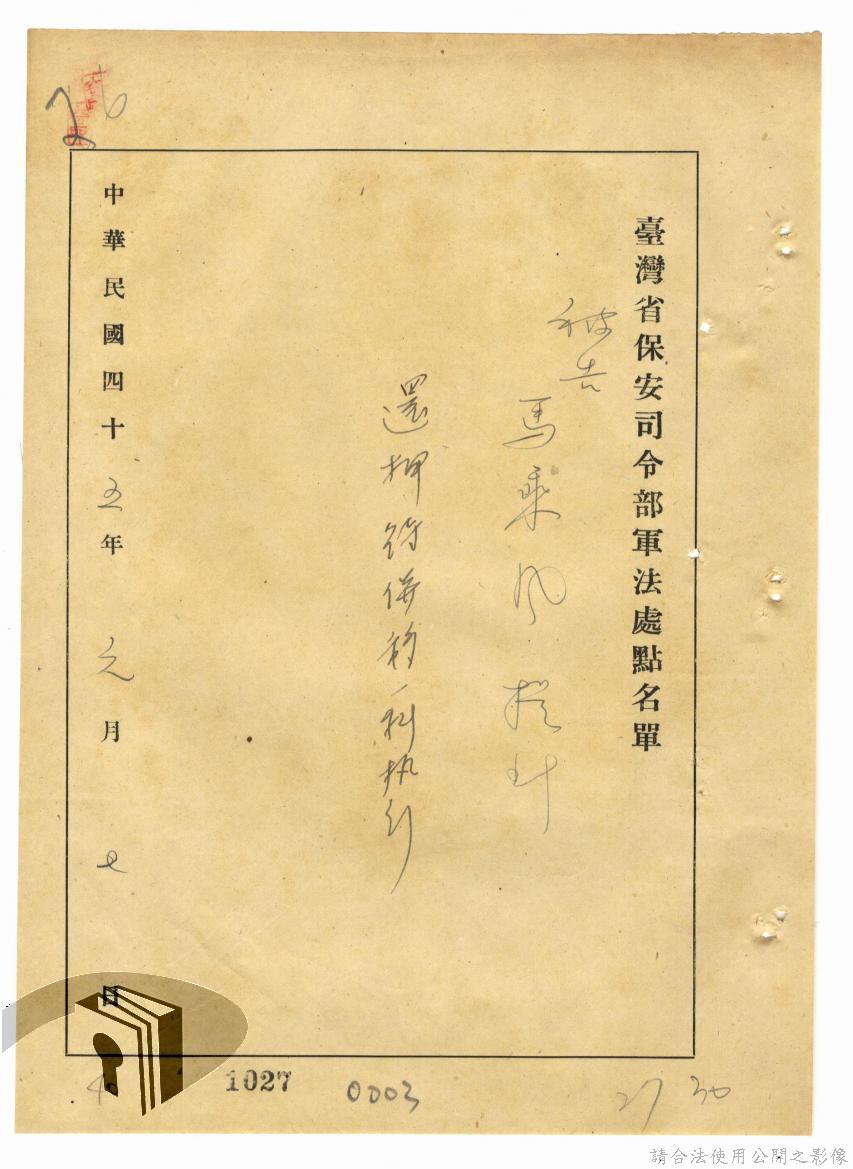 臺灣省保安司令部軍法處點名單
被告
馬乘風 提到
還押待併移科执行
中華民國四十五年元月七日
1027
0003
27 30
請合法使用公開之影像